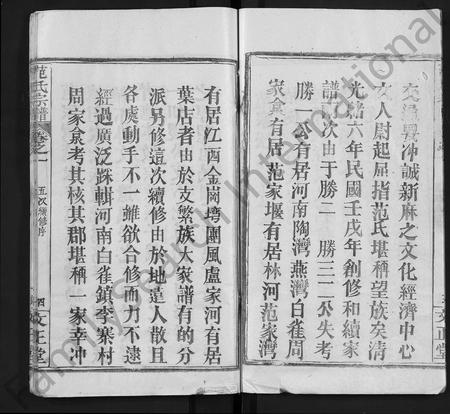 交溳異冲誠新麻之文化經濟中心
文人蔚起屈指范氏堪稱望族矣清
光緒六年民國壬戌年創修和續家
譜二次由于勝二 勝三二公失考
勝一公有居河南陶灣燕灣白雀周
家畣有居范家堰有居林河范家灣
文正堂
有居江西金崗塆團風盧家河有居
葉店者由於支繁族大家譜有的分
派另修這次續修由於地遠人散且
各處動手不一雖欲合修而力不逮
經過廣泛蹂輯河南白雀鎮李寨村
周家畣考其核其郡堪稱一家幸冲
范氏宗譜
卷之一
五次續修序
四
文正堂
FamilySearch International